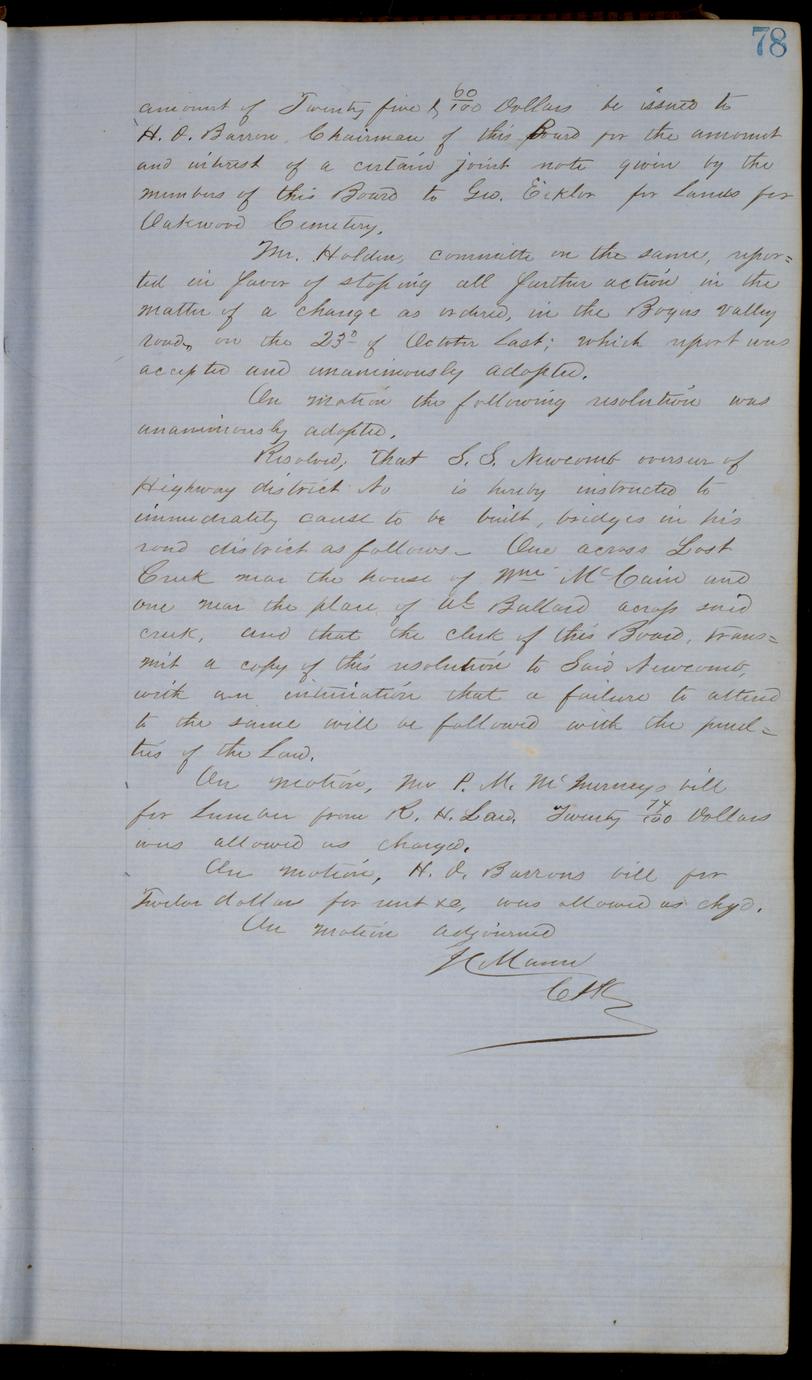 78
amount of Twenty five & 60/100 Dollars be issued to
H. O. Barron, Chairman of this Board for the amount
and interest of a certain joint note given by the
members of this Board to Geo. Eckler for Lands for
Oakwood Cemetery.
Mr. Holden, committe on the same, repor=
ted in favor of stoping all further action in the
matter of a change as ordered, in the Bogus Valley
road, on the 23d of October last; which report was
accepted and unanimously adopted.
On motion the following resolution was
unanimously adopted.
Resolved, that S. S. Newcomb overseer of
Highway district No is hereby instructed to
immediately cause to be built, bridges in his
road district as follows - One across Lost
Creek near the house of Wm McCain and
one near the place of Ballard across said
creek, and that the clerk of this Board, trans=
mit a copy of this resolution to Said Newcomb,
with an intimation that a failure to attend
to the same will be followed with the penal=
ties of the Law.
On motion, Mr P. M. McInerneys bill
for Lumber from R. H. Law. Twenty 74/100 Dollars
was allowed as charged.
On motion, H. O. Barrons bill for
Twelve dollars for rent &c, was allowed as chgd.
On motion adjourned
J C Mann
Clk